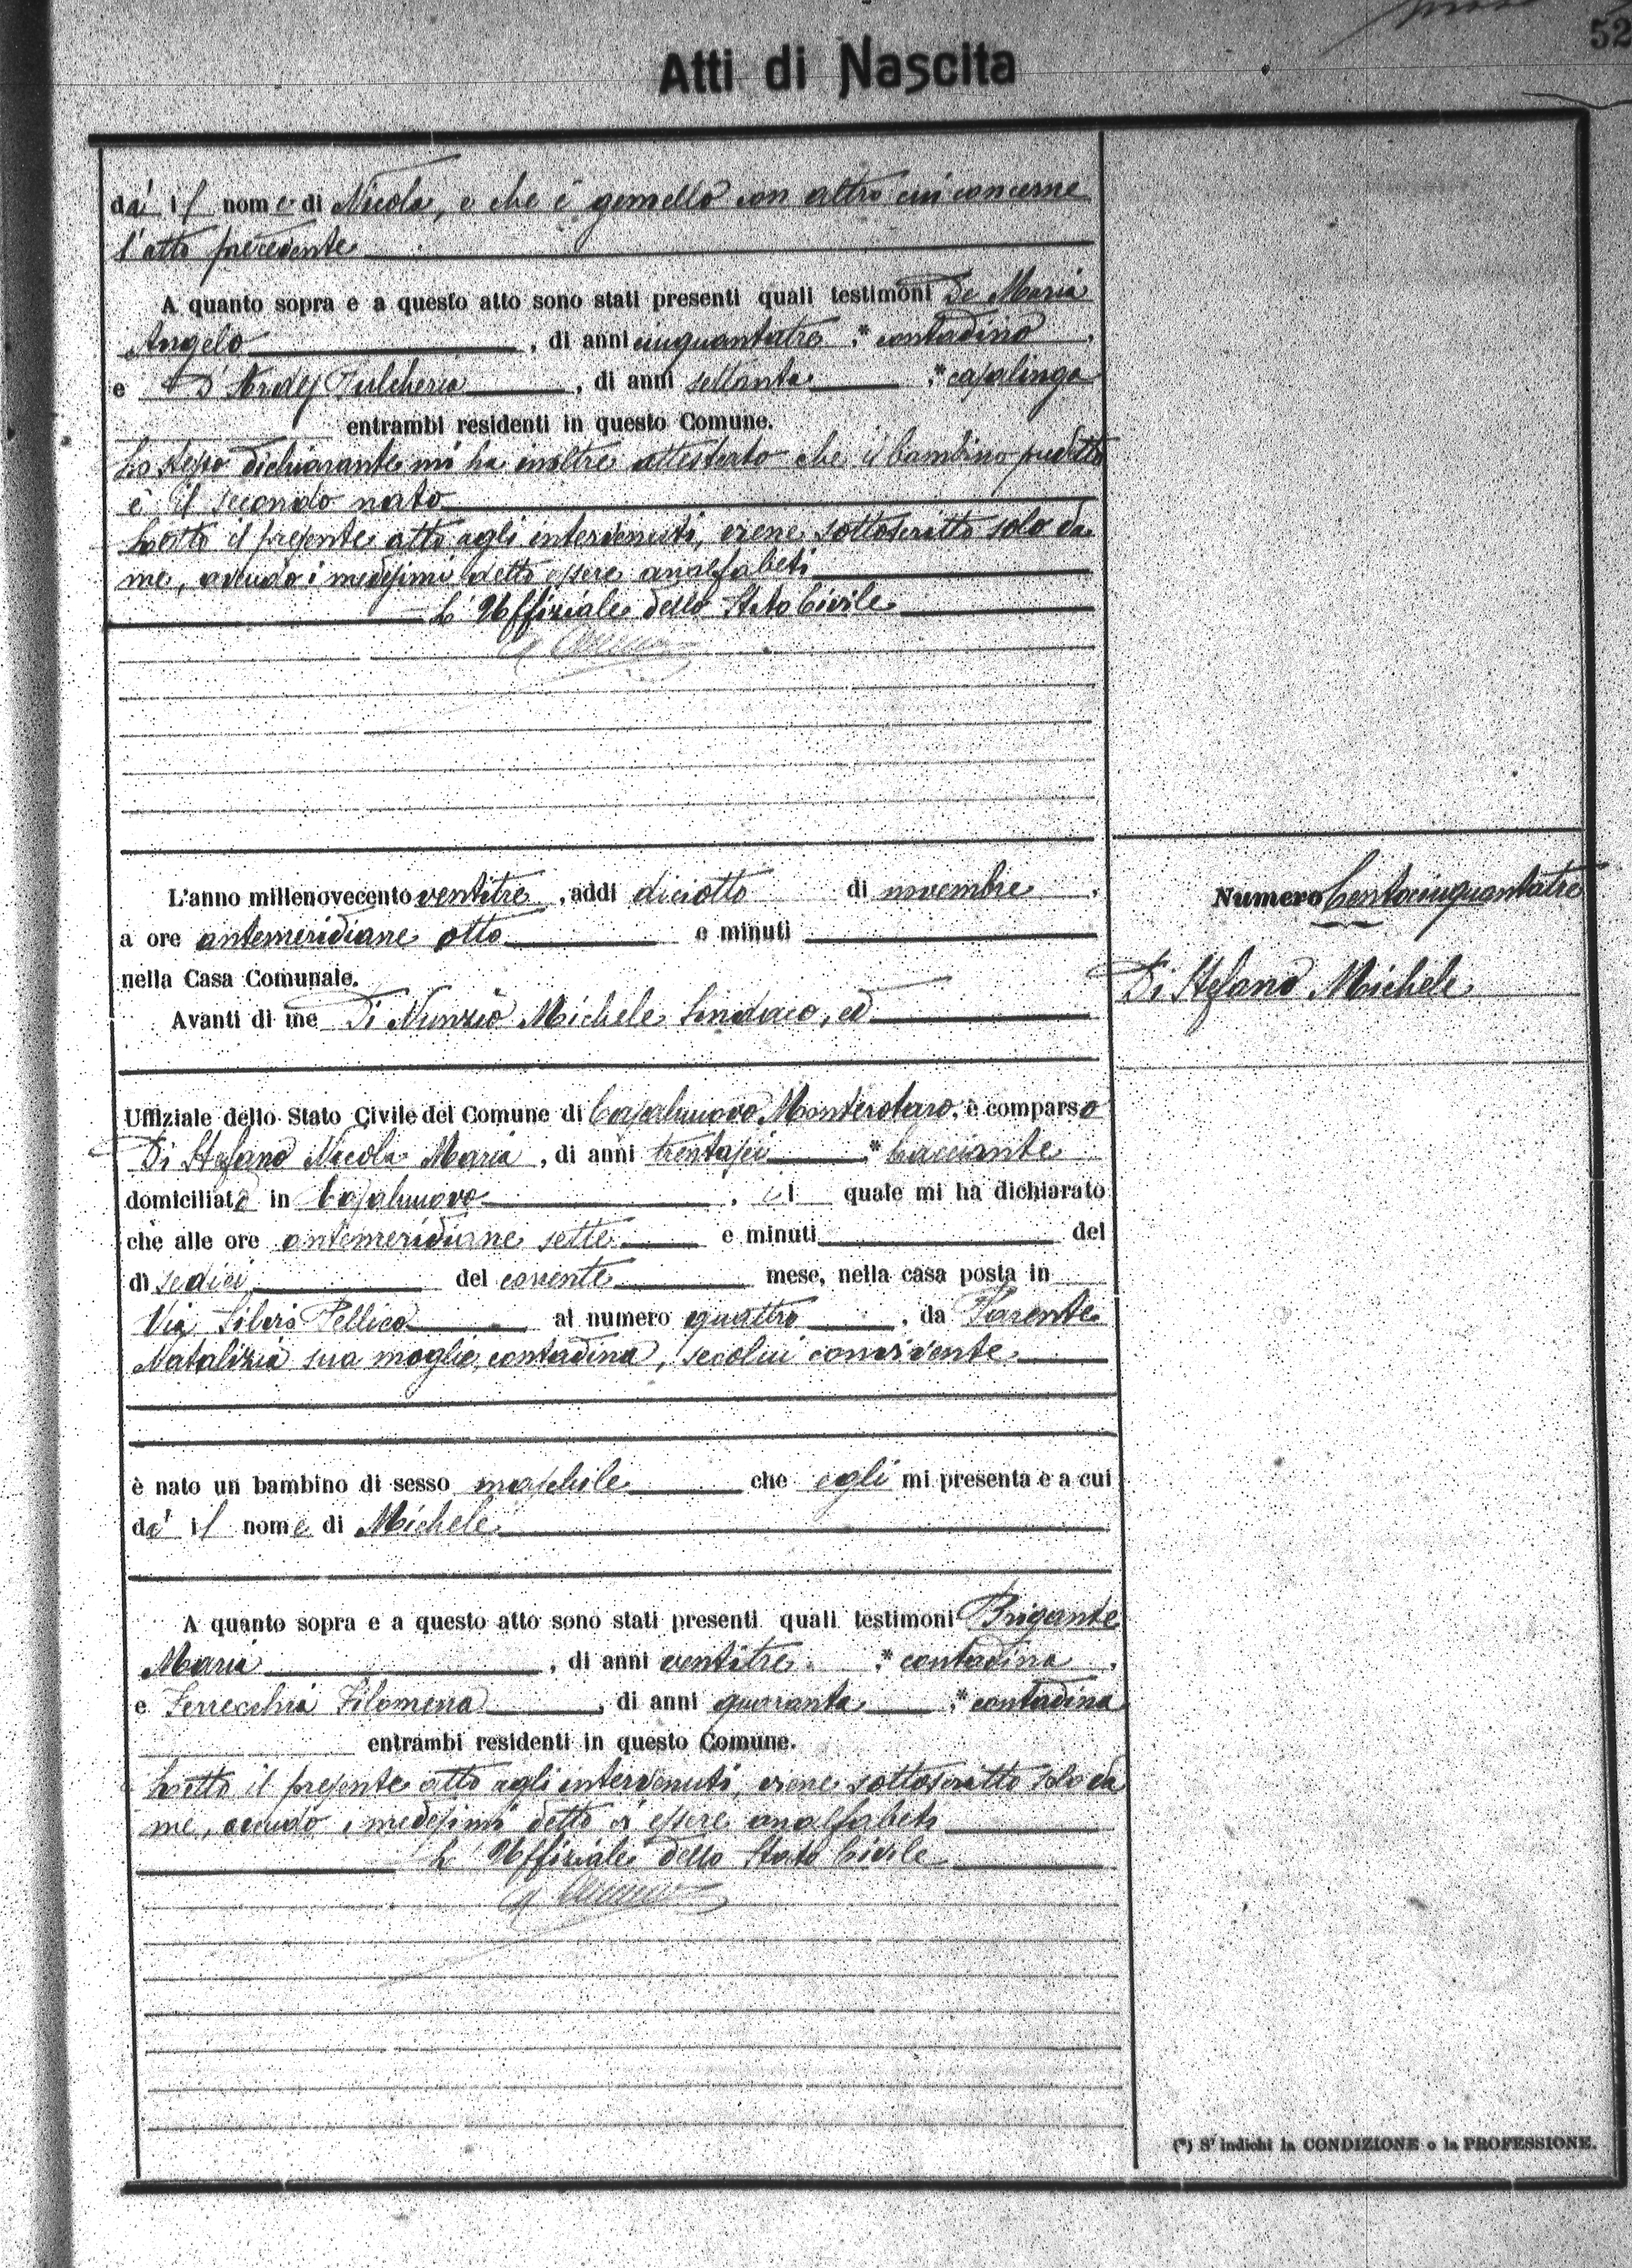 52
Atti di Nascita
dà il nome di Nicola, e che è gemello con altro cui concerne
l'atto precedente
A quanto sopra e a questo atto sono stati presenti quali testimoni De Maria
Angelo, di anni cinquantatre, * contadino,
e D' Pulcheria, di anni settanta, * casalinga
entrambi residenti in questo Comune.
Lo stesso dichiarante mi ha inoltre attestato che il bambino predetto
è il secondo nato
Letto il presente atto agli intervenuti, viene sottoscritto solo da
me, avendo i medesimi detto essere analfabeti
L'Uffiziale dello Stato Civile
L'anno millenovecento ventitre, addì diciotto di novembre,
a ore antemeridiane otto e minuti
nella Casa Comunale.
Avanti di me Di Nunzio Michele Sindaco, ed
Numero Centocinquantatre
Di Stefano Michele
Uffiziale dello Stato Civile del Comune di Casalnuovo Monterotaro, è comparso
Di Stefano Nicola Maria, di anni trentasei, * bracciante
domiciliato in Casalnuovo, il quale mi ha dichiarato
che alle ore antemeridiane sette e minuti del
dì sedici del corrente mese, nella casa posta in
Via Silvio Pellico al numero quattro, da Parente
Natalizia sua moglie, contadina, secolui convivente
è nato un bambino di sesso maschile che egli mi presenta e a cui
dà il nome di Michele
A quanto sopra e a questo atto sono stati presenti quali testimoni Brigante
Maria, di anni ventitre, * contadina,
e Ferrecchia Filomena, di anni quaranta, * contadina
entrambi residenti in questo Comune.
Letto il presente atto agli intervenuti, viene sottoscritto solo da
me, avendo i medesimi detto di essere analfabeti
L'Uffiziale dello Stato Civile
(*) Si indichi la CONDIZIONE o la PROFESSIONE.